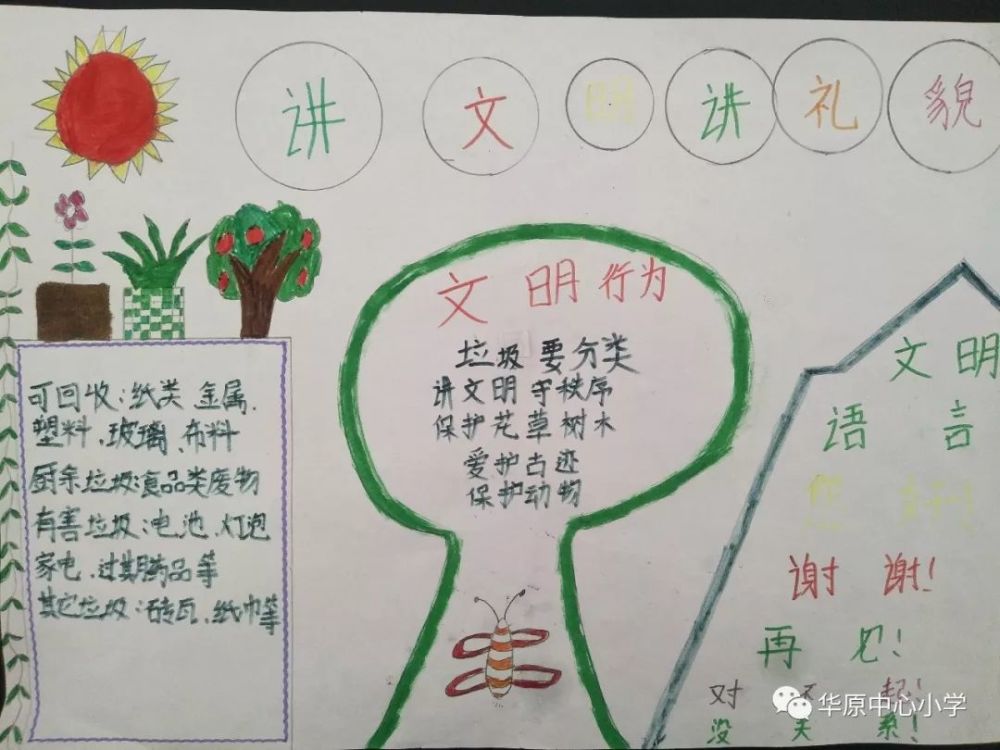 讲文明讲礼貌
可回收:纸类 金属、
塑料、玻璃、布料
厨余垃圾:食品类废物
有害垃圾:电池、灯泡
家电、过期药品等
其它垃圾:砖瓦、纸巾等
文明行为
垃圾要分类
讲文明守秩序
保护花草树木
爱护古迹
保护动物
文明
语言
您好
谢谢!
再见!
对不起!
没关系!
华原中心小学